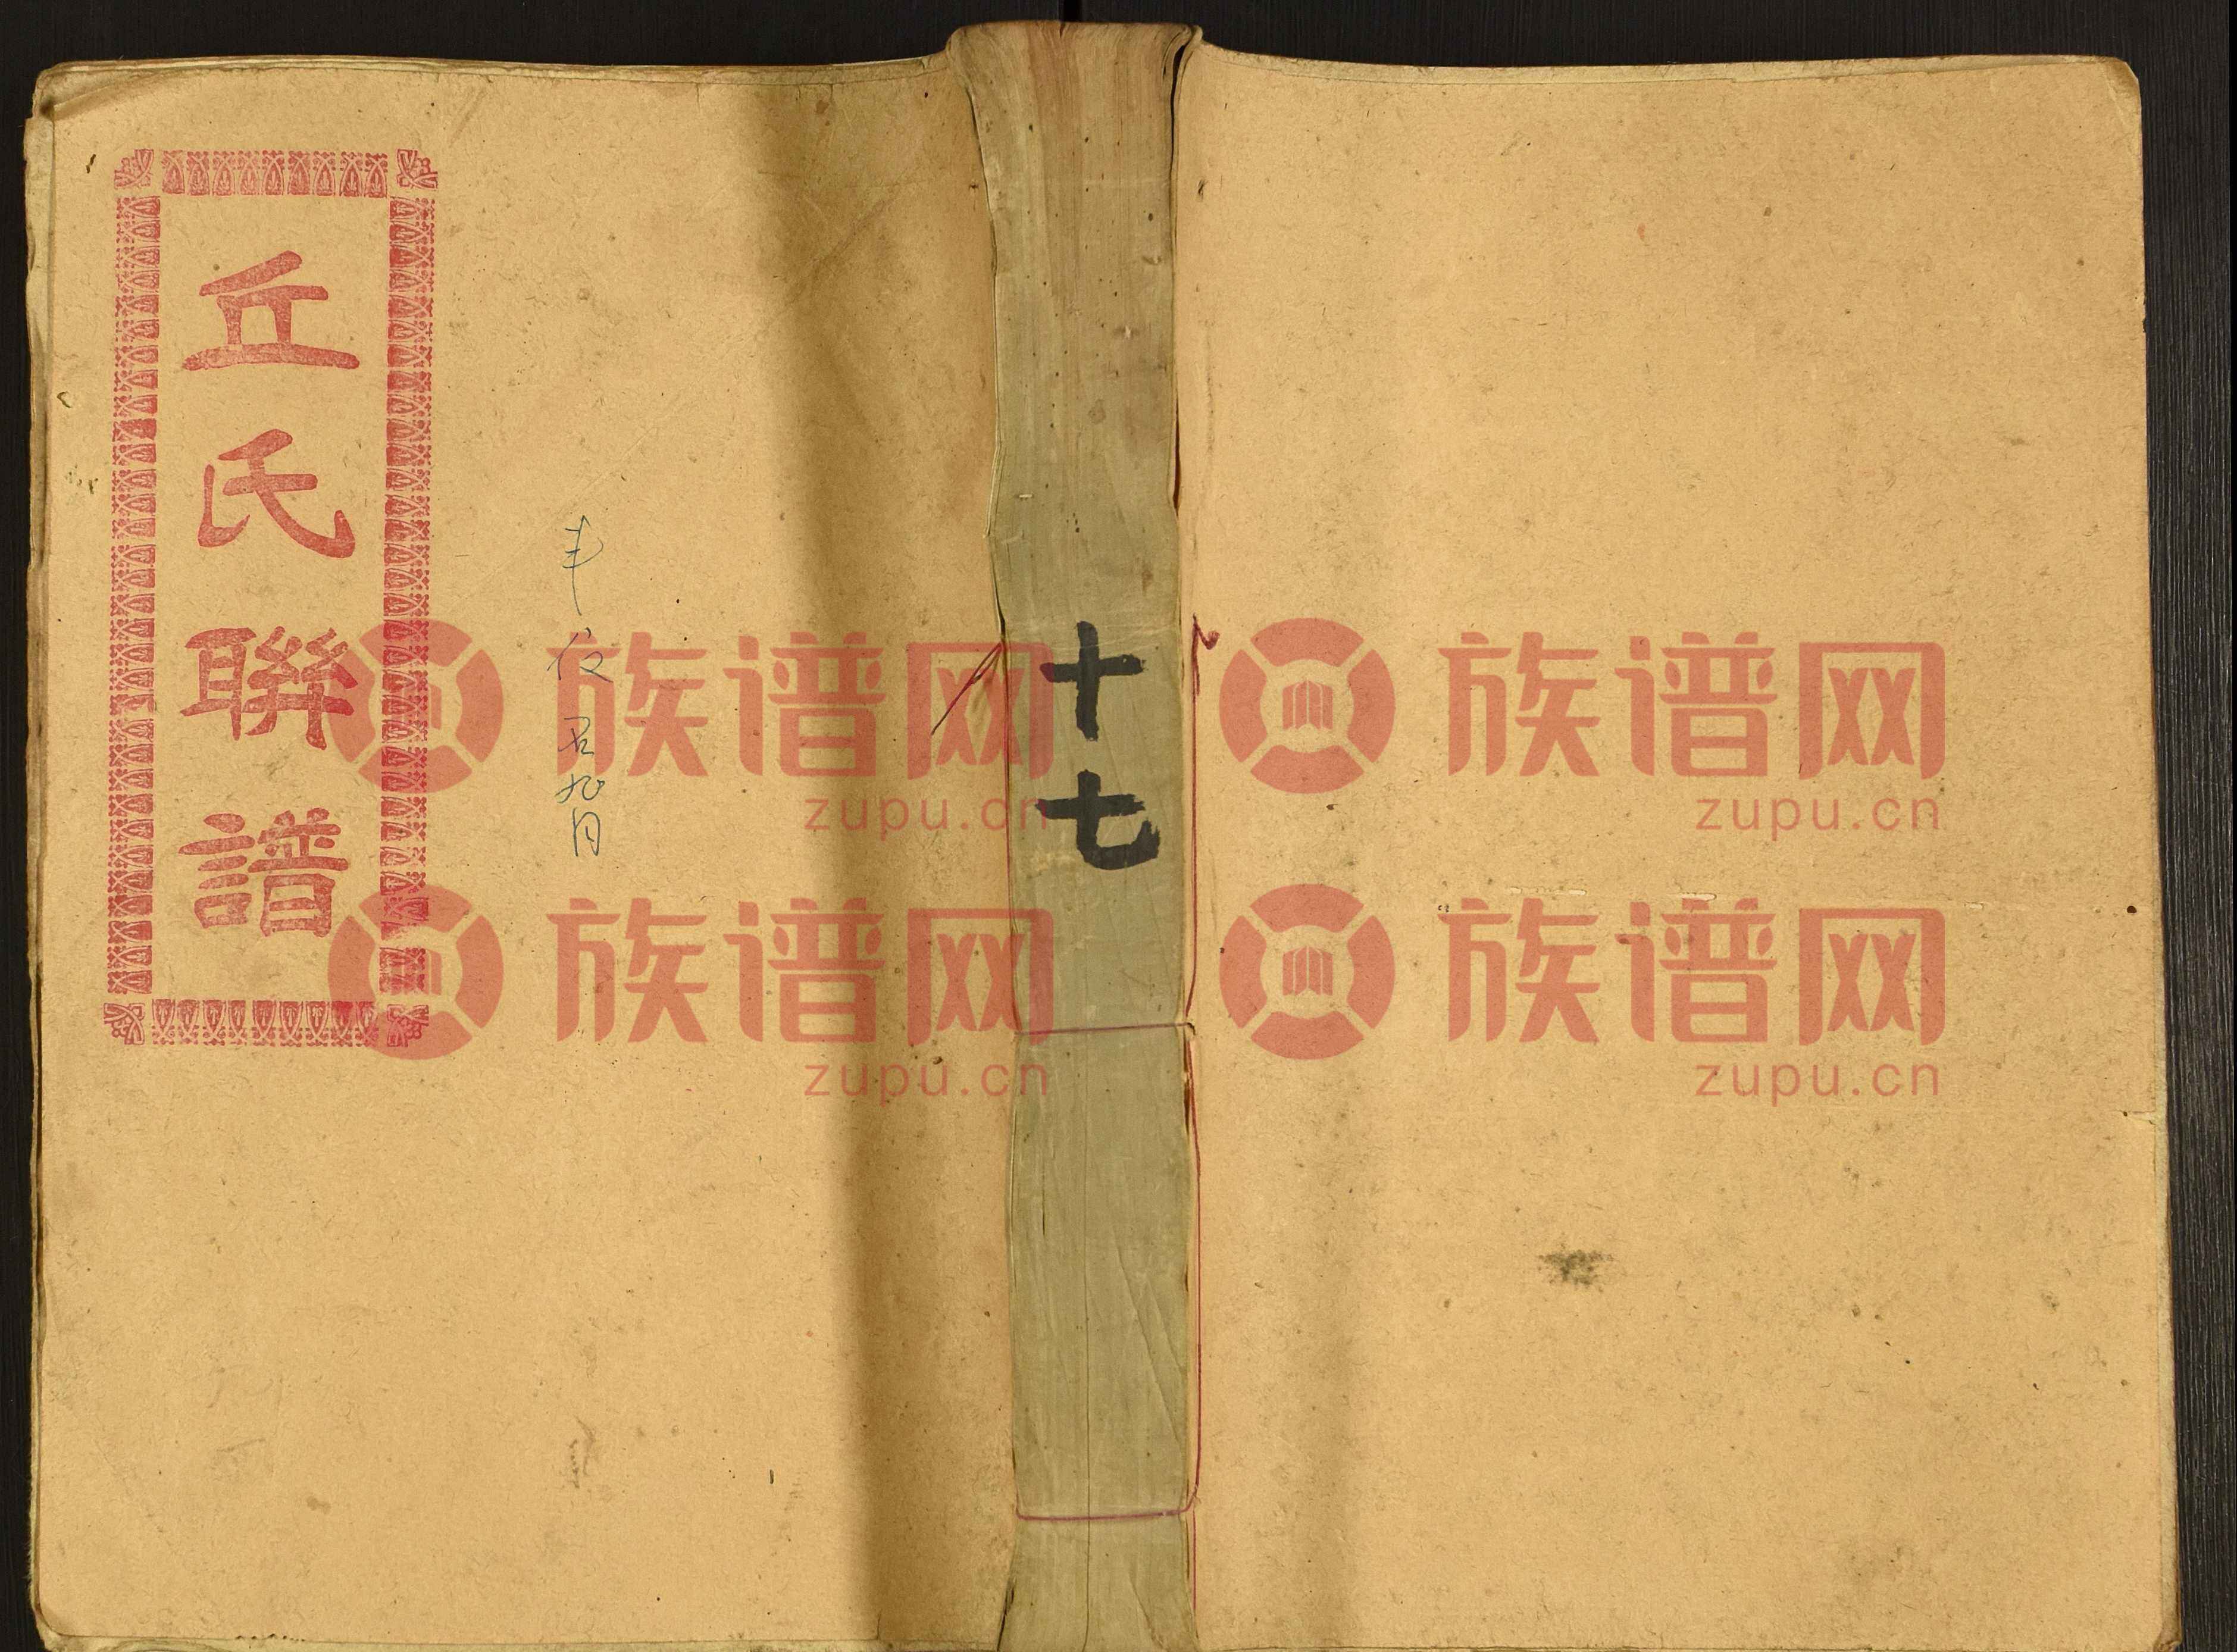 丘氏聯譜
十七
族谱网
zupu.cn
族谱网
zupu.cn
族谱网
zupu.cn
族谱网
zupu.cn